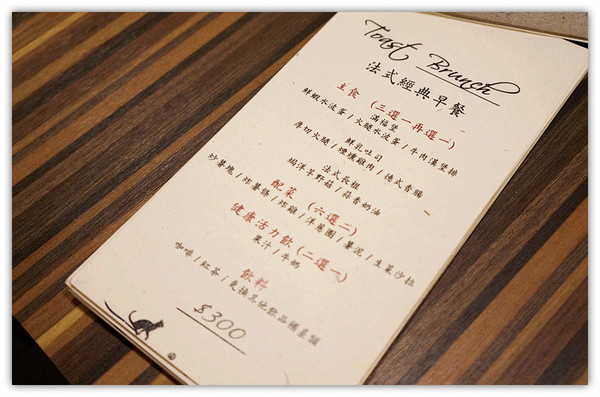 Toast Brunch
法式經典早餐
主食 (三選一再選一)
滿福堡
鮮蝦水波蛋/火腿水波蛋/牛肉漢堡排
鮮乳吐司
厚切火腿/煙燻雞肉/德式香腸
法式長棍
焗洋芋野菇/蒜香奶油
配菜 (六選二)
炒蕃塊/炸薯條/炸雞/洋蔥圈/薯泥/生菜沙拉
健康活力飲(二選一)
果汁/牛奶
飲料
咖啡/紅茶/更換其他飲品補差額
$300